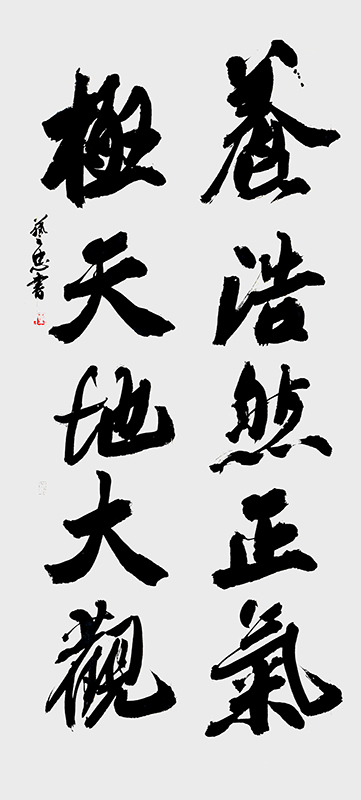 養浩然正氣
極天地大觀
藝忠書